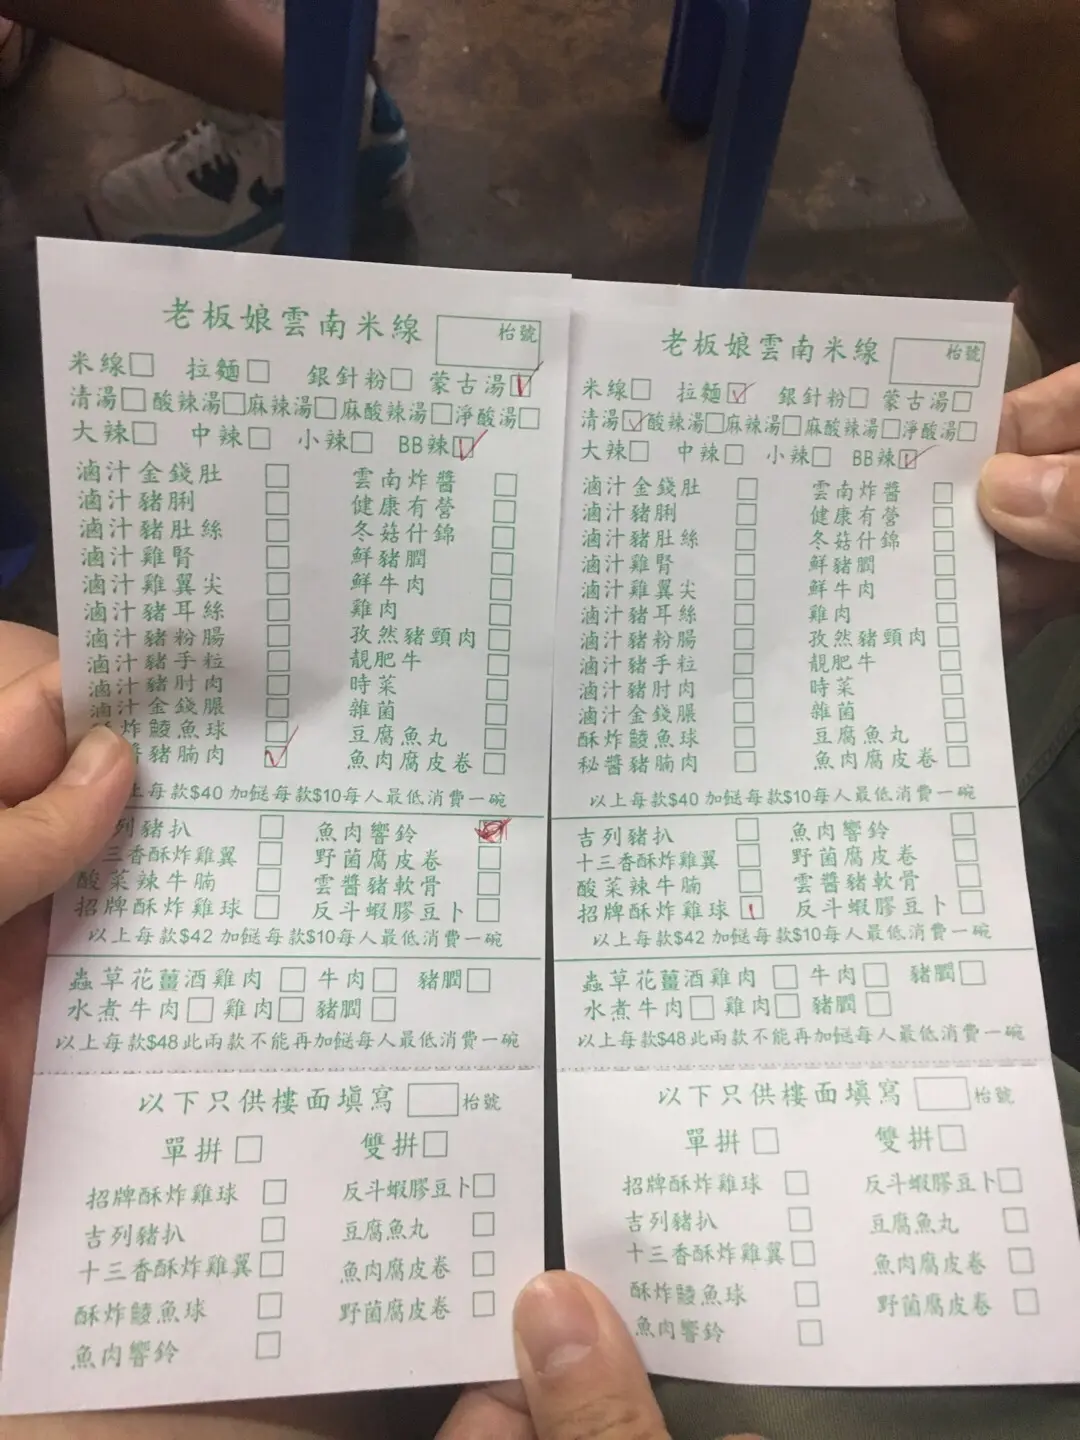 老板娘雲南米線
枱號
米線 拉麵 銀針粉 蒙古湯
清湯 酸辣湯 麻辣湯 麻酸辣湯 淨酸湯
大辣 中辣 小辣 BB辣
滷汁金錢肚 雲南炸醬
滷汁豬脷 健康有營
滷汁豬肚絲 冬菇什錦
滷汁雞腎 鮮豬膶
滷汁雞翼尖 鮮牛肉
滷汁豬耳絲 雞肉
滷汁豬粉腸 孜然豬頸肉
滷汁豬手粒 靚肥牛
滷汁豬肘肉 時菜
滷汁金錢𦟌 雜菌
炸鯪魚球 豆腐魚丸
醬豬腩肉 魚肉腐皮卷
上每款$40 加餸每款$10每人最低消費一碗
列豬扒 魚肉響鈴
三香酥炸雞翼 野菌腐皮卷
酸菜辣牛腩 雲醬豬軟骨
招牌酥炸雞球 反斗蝦膠豆卜
以上每款$42 加餸每款$10每人最低消費一碗
蟲草花薑酒雞肉 牛肉 豬膶
水煮牛肉 雞肉 豬膶
以上每款$48此兩款不能再加餸每人最低消費一碗
以下只供樓面填寫 枱號
單拼 雙拼
招牌酥炸雞球 反斗蝦膠豆卜
吉列豬扒 豆腐魚丸
十三香酥炸雞翼 魚肉腐皮卷
酥炸鯪魚球 野菌腐皮卷
魚肉響鈴
老板娘雲南米線
枱號
米線 拉麵 銀針粉 蒙古湯
清湯 酸辣湯 麻辣湯 麻酸辣湯 淨酸湯
大辣 中辣 小辣 BB辣
滷汁金錢肚 雲南炸醬
滷汁豬脷 健康有營
滷汁豬肚絲 冬菇什錦
滷汁雞腎 鮮豬膶
滷汁雞翼尖 鮮牛肉
滷汁豬耳絲 雞肉
滷汁豬粉腸 孜然豬頸肉
滷汁豬手粒 靚肥牛
滷汁豬肘肉 時菜
滷汁金錢𦟌 雜菌
酥炸鯪魚球 豆腐魚丸
秘醬豬腩肉 魚肉腐皮卷
以上每款$40 加餸每款$10每人最低消費一碗
吉列豬扒 魚肉響鈴
十三香酥炸雞翼 野菌腐皮卷
酸菜辣牛腩 雲醬豬軟骨
招牌酥炸雞球 反斗蝦膠豆卜
以上每款$42 加餸每款$10每人最低消費一碗
蟲草花薑酒雞肉 牛肉 豬膶
水煮牛肉 雞肉 豬膶
以上每款$48此兩款不能再加餸每人最低消費一碗
以下只供樓面填寫 枱號
單拼 雙拼
招牌酥炸雞球 反斗蝦膠豆卜
吉列豬扒 豆腐魚丸
十三香酥炸雞翼 魚肉腐皮卷
酥炸鯪魚球 野菌腐皮卷
魚肉響鈴